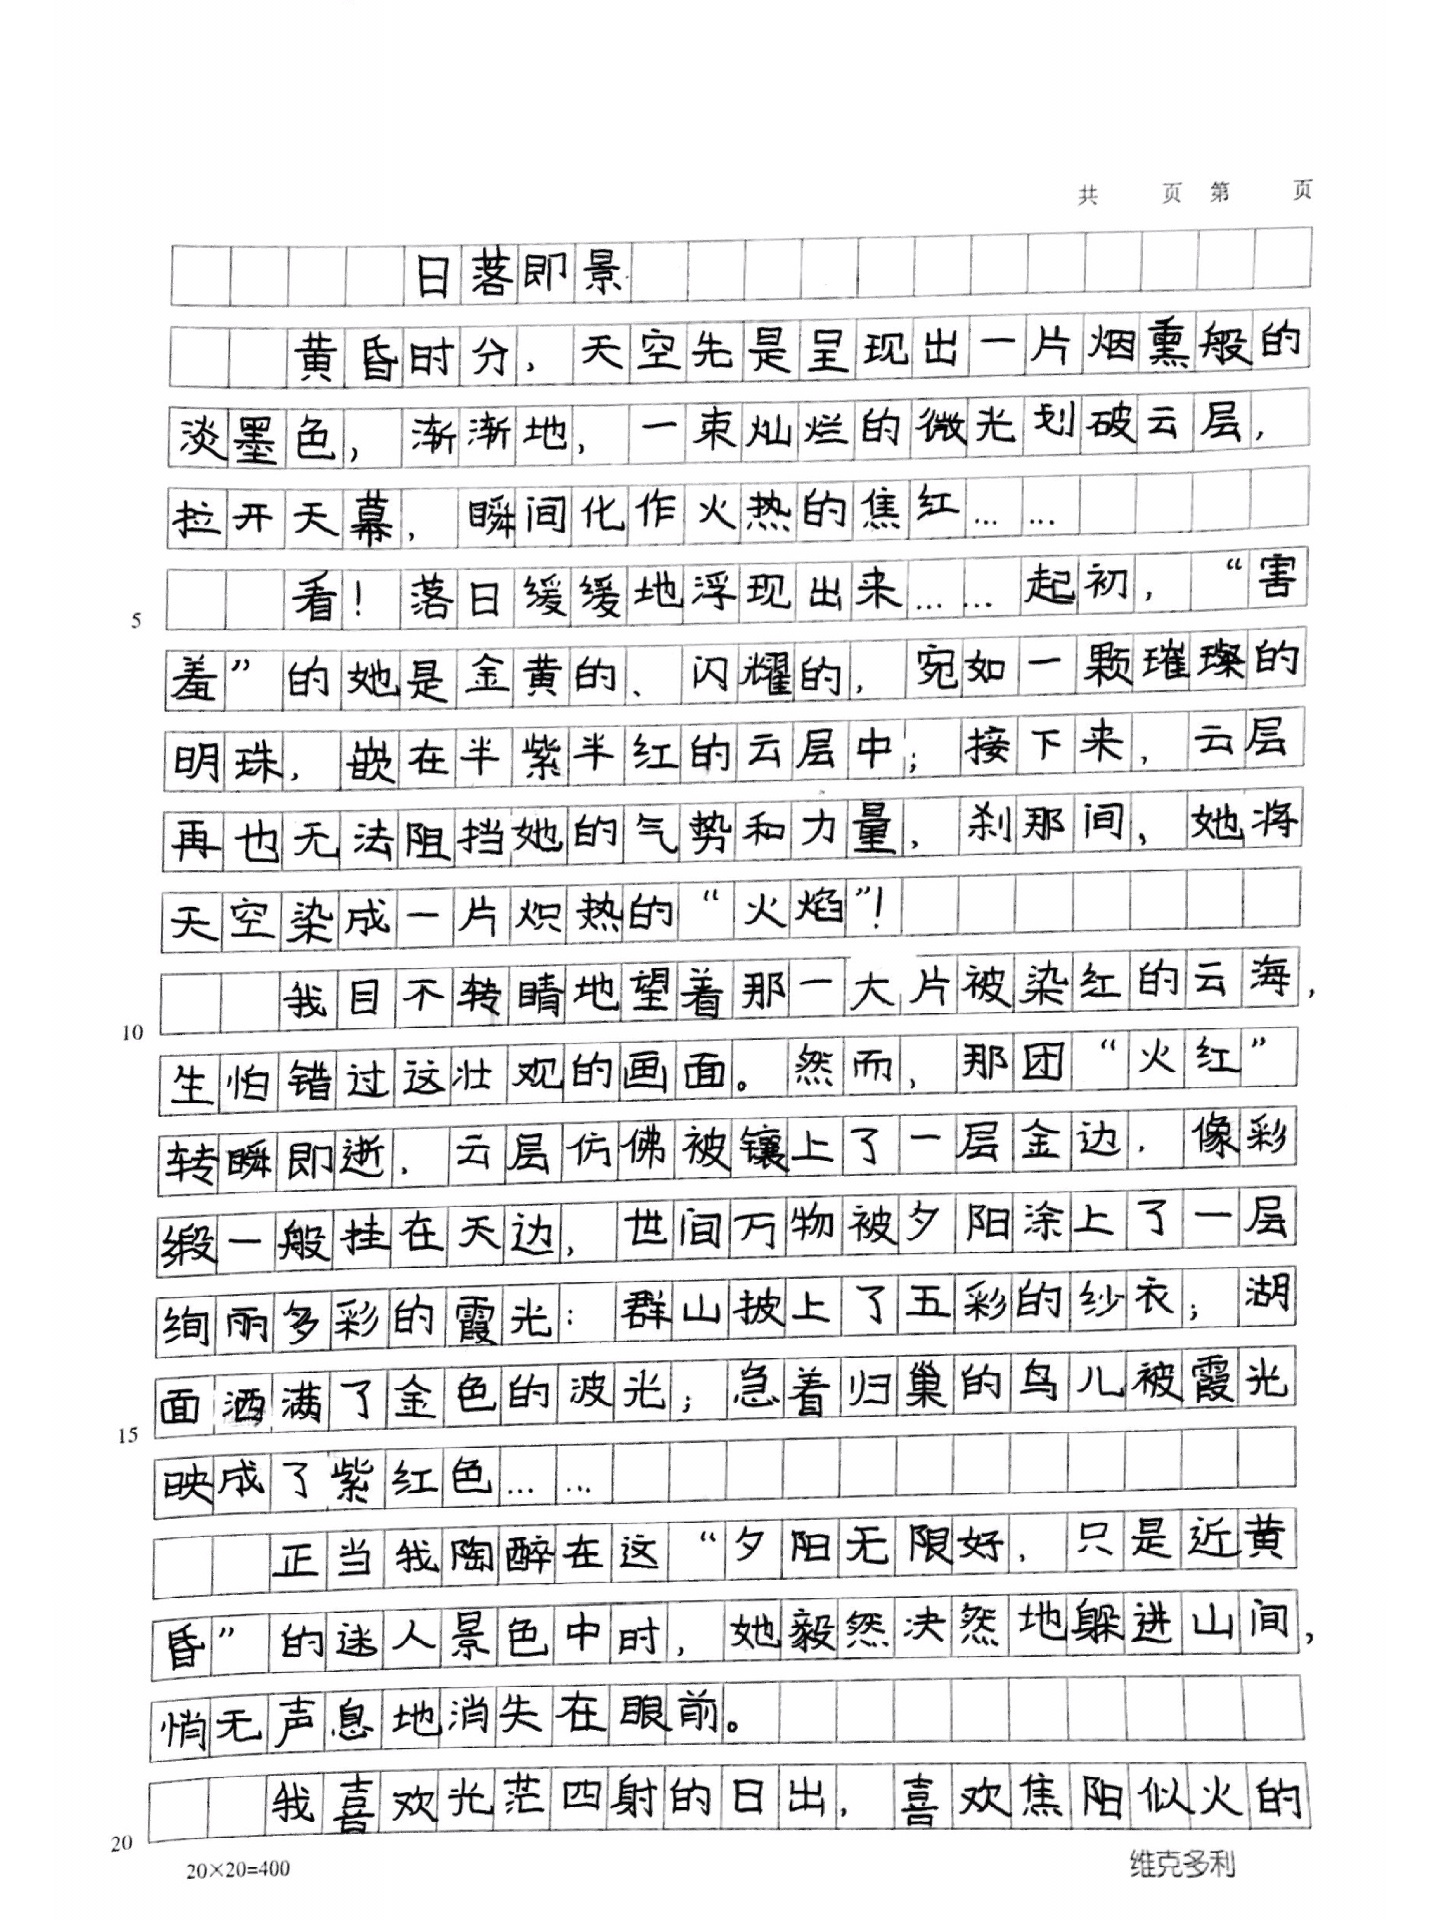 共 页 第 页
日落即景
黄昏时分，天空先是呈现出一片烟熏般的
淡墨色，渐渐地，一束灿烂的微光划破云层，
拉开天幕，瞬间化作火热的焦红……
看！落日缓缓地浮现出来……起初，“害
5
羞”的她是金黄的、闪耀的，宛如一颗璀璨的
明珠，嵌在半紫半红的云层中；接下来，云层
再也无法阻挡她的气势和力量，刹那间，她将
天空染成一片炽热的“火焰”！
我目不转睛地望着那一大片被染红的云海，
10
生怕错过这壮观的画面。然而，那团“火红”
转瞬即逝，云层仿佛被镶上了一层金边，像彩
缎一般挂在天边，世间万物被夕阳涂上了一层
绚丽多彩的霞光：群山披上了五彩的纱衣；湖
面洒满了金色的波光；急着归巢的鸟儿被霞光
15
映成了紫红色……
正当我陶醉在这“夕阳无限好，只是近黄
昏”的迷人景色中时，她毅然决然地躲进山间，
悄无声息地消失在眼前。
我喜欢光茫四射的日出，喜欢焦阳似火的
20
20×20=400 维克多利